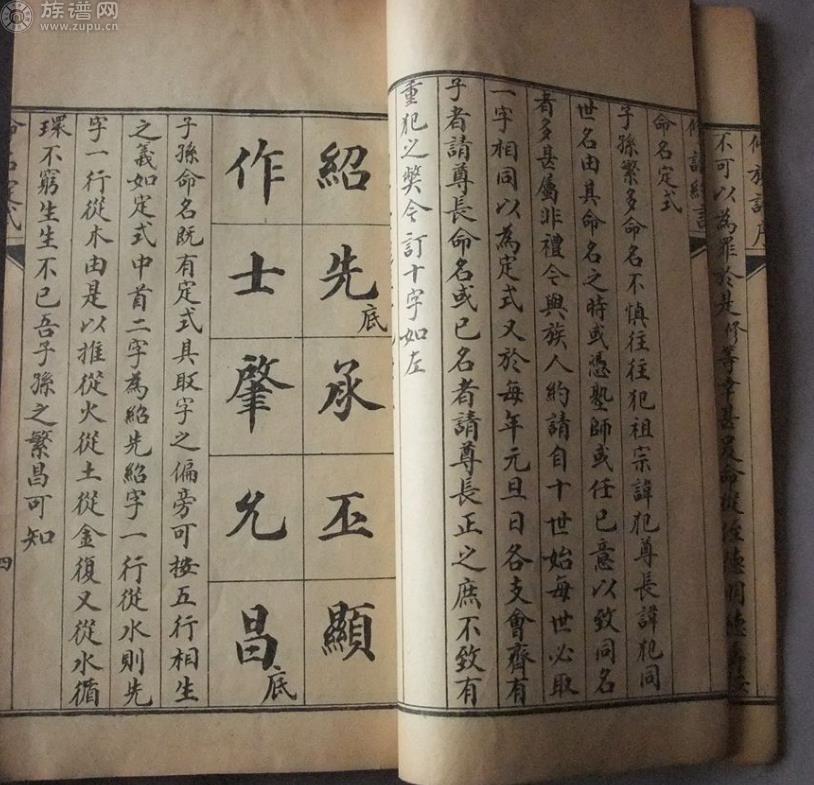 族谱网
www.zupu.cn
不可以為罪於是修等幸甚
命名定式
子孫繁多命名不慎往往犯祖宗諱犯尊長諱犯同
世名由其命名之時或憑塾師或任己意以致同名
者多甚屬非禮今與族人約請自十世始每世必取
一字相同以為定式又於每年元旦日各支會齊有
子者請尊長命名或已名者請尊長正之庶不致有
重犯之獘今訂十字如左
紹先底承丕顯
作士肇允昌底
子孫命名既有定式其取字之偏旁可按五行相生
之義如定式中首二字為紹先紹字一行從水則先
字一行從木由是以推從火從土從金復又從水循
環不窮生生不已吾子孫之繁昌可知
命名定式
四